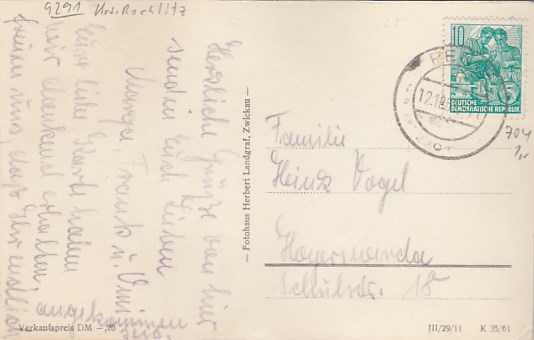 9291 Krs. Rochlitz
Herzliche Grüße von hier
senden Euch Lieben
Frank u. Omi
Eure liebe Karte haben
wir dankend erhalten,
freuen uns, daß Ihr endlich
angekommen
seid.
Verkaufspreis DM
– Fotohaus Herbert Landgraf, Zwickau –
10
5
DEUTSCHE
DEMOKRATISCHE REPUBLIK
704
1,-
Familie
Heinz Vogel
Hoyerswerda
18
III/29/11 K 35/61